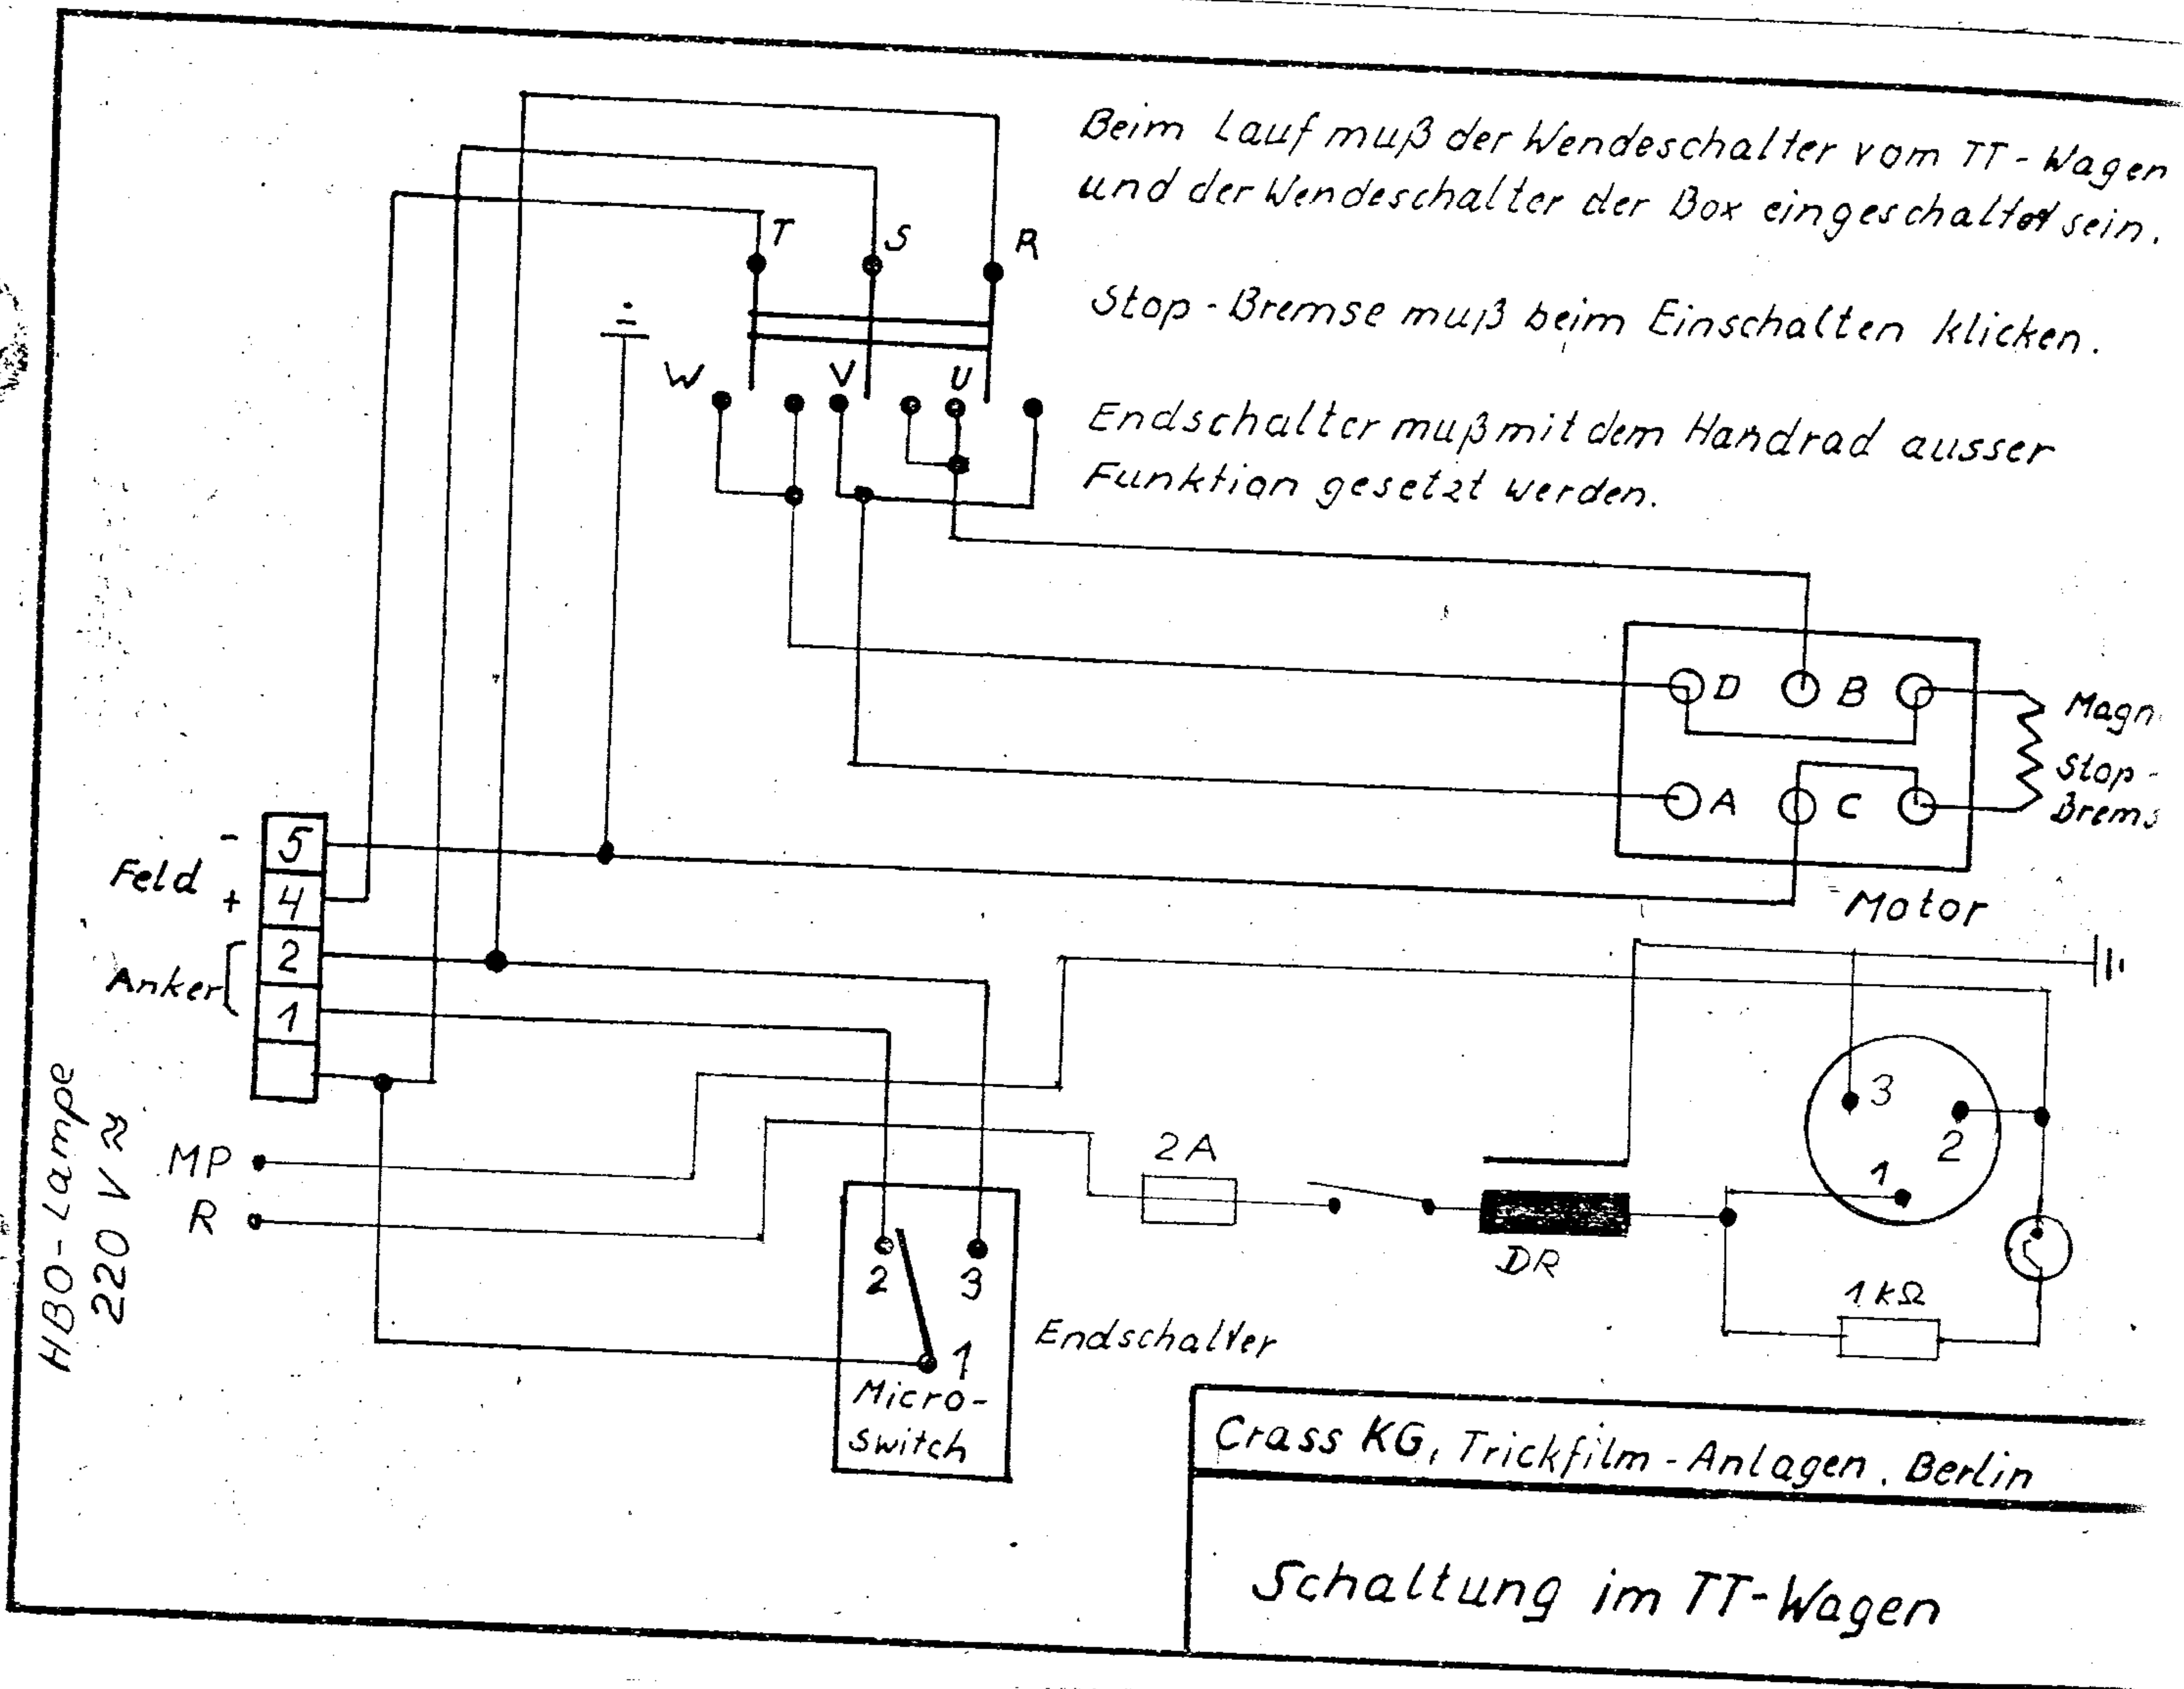 Beim Lauf muß der Wendeschalter vom TT-Wagen
und der Wendeschalter der Box eingeschaltet sein.
Stop-Bremse muß beim Einschalten klicken.
Endschalter muß mit dem Handrad ausser
Funktion gesetzt werden.
T S R
W V U
D B
A C
Magn
Stop-
Brems
Motor
- 5
Feld
+ 4
2
Anker
1
HBO-Lampe
220 V ≈
MP
R
2 3
1
Micro-
switch
Endschalter
2A
DR
3
2
1
1 kΩ
Crass KG, Trickfilm-Anlagen. Berlin
Schaltung im TT-Wagen